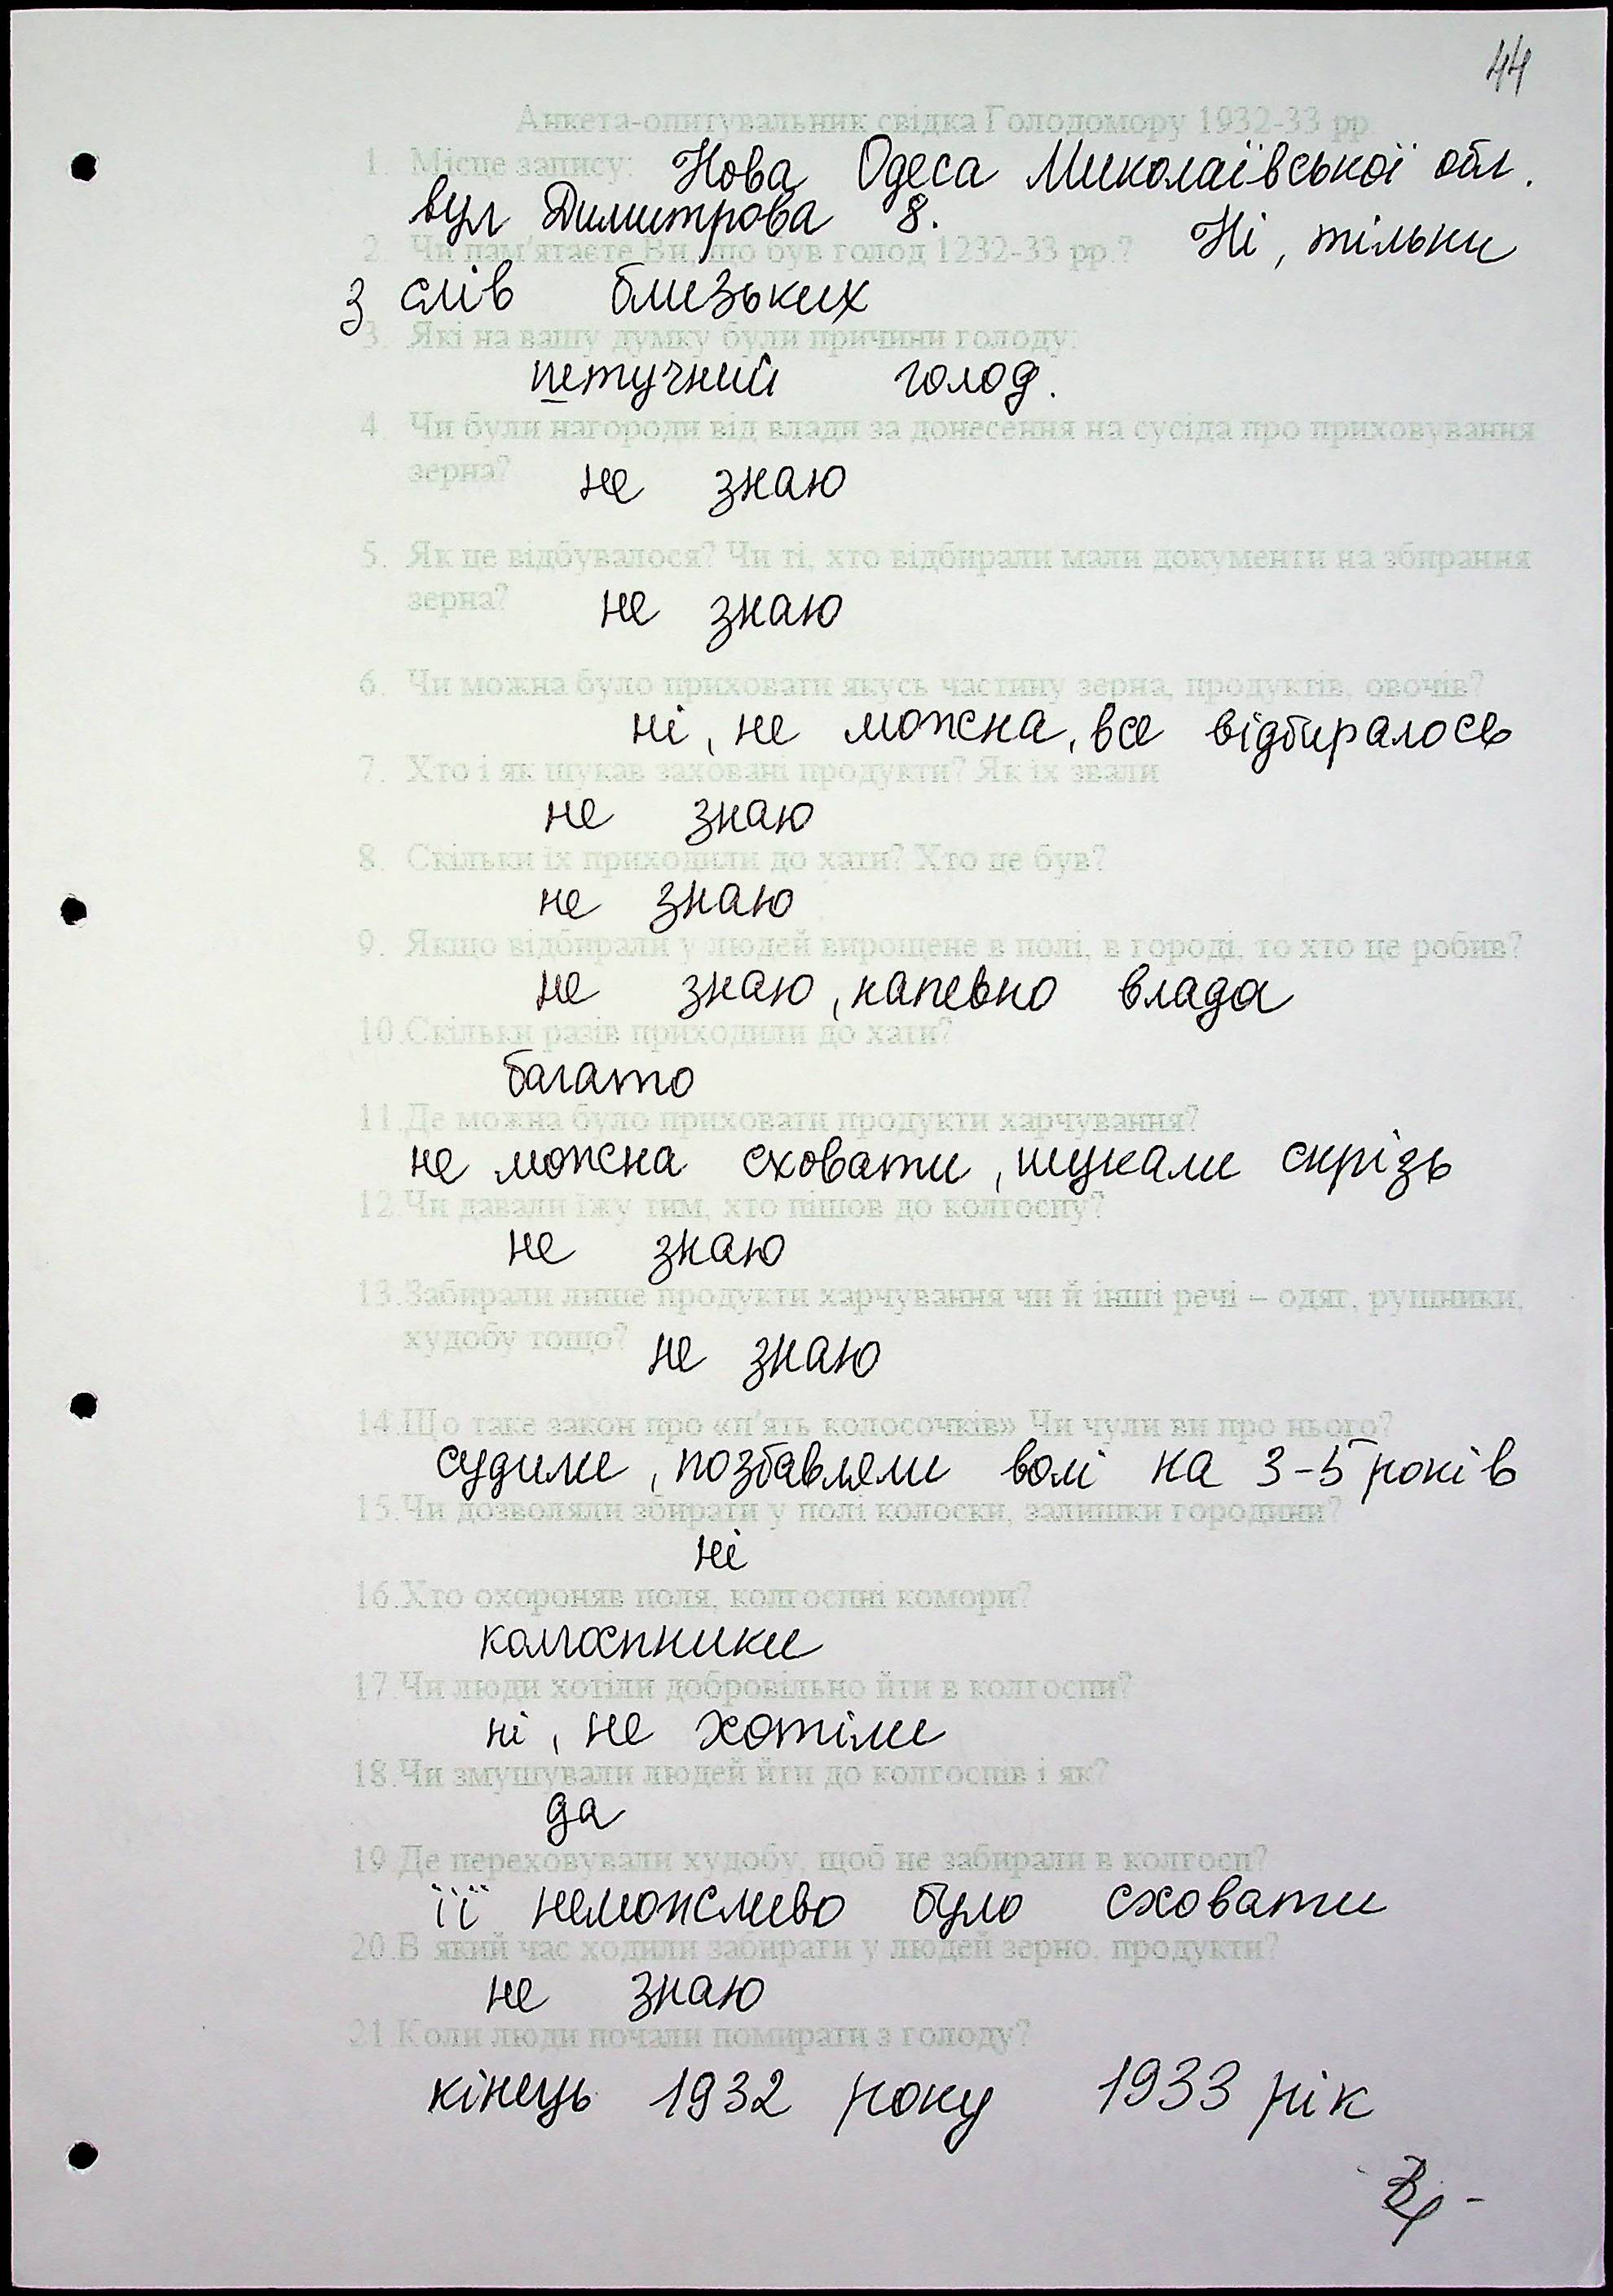 44
Анкета-опитувальник свідка Голодомору 1932-33 рр.
1. Місце запису: Нова Одеса Миколаївської обл.
вул Димитрова 8.
2. Чи пам'ятаєте Ви, що був голод 1232-33 рр.? Ні, тільки
з слів близьких
3. Які на вашу думку були причини голоду:
штучний голод.
4. Чи були нагороди від влади за донесення на сусіда про приховування
зерна? не знаю
5. Як це відбувалося? Чи ті, хто відбирали мали документи на збирання
зерна? не знаю
6. Чи можна було приховати якусь частину зерна, продуктів, овочів?
ні, не можна, все відбиралось
7. Хто і як шукав заховані продукти? Як їх звали
не знаю
8. Скільки їх приходили до хати? Хто це був?
не знаю
9. Якщо відбирали у людей вирощене в полі, в городі, то хто це робив?
не знаю, напевно влада
10.Скільки разів приходили до хати?
багато
11.Де можна було приховати продукти харчування?
не можна сховати, шукали скрізь
12.Чи давали їжу тим, хто пішов до колгоспу?
не знаю
13.Забирали лише продукти харчування чи й інші речі – одяг, рушники,
худобу тощо? не знаю
14.Що таке закон про «п'ять колосочків» Чи чули ви про нього?
судили, позбавляли волі на 3-5 років
15.Чи дозволяли збирати у полі колоски, залишки городини?
ні
16.Хто охороняв поля, колгоспні комори?
колгоспники
17.Чи люди хотіли добровільно йти в колгоспи?
ні, не хотіли
18.Чи змушували людей йти до колгоспів і як?
да
19.Де переховували худобу, щоб не забирали в колгосп?
її неможливо було сховати
20.В який час ходили забирати у людей зерно, продукти?
не знаю
21.Коли люди почали помирати з голоду?
кінець 1932 року 1933 рік